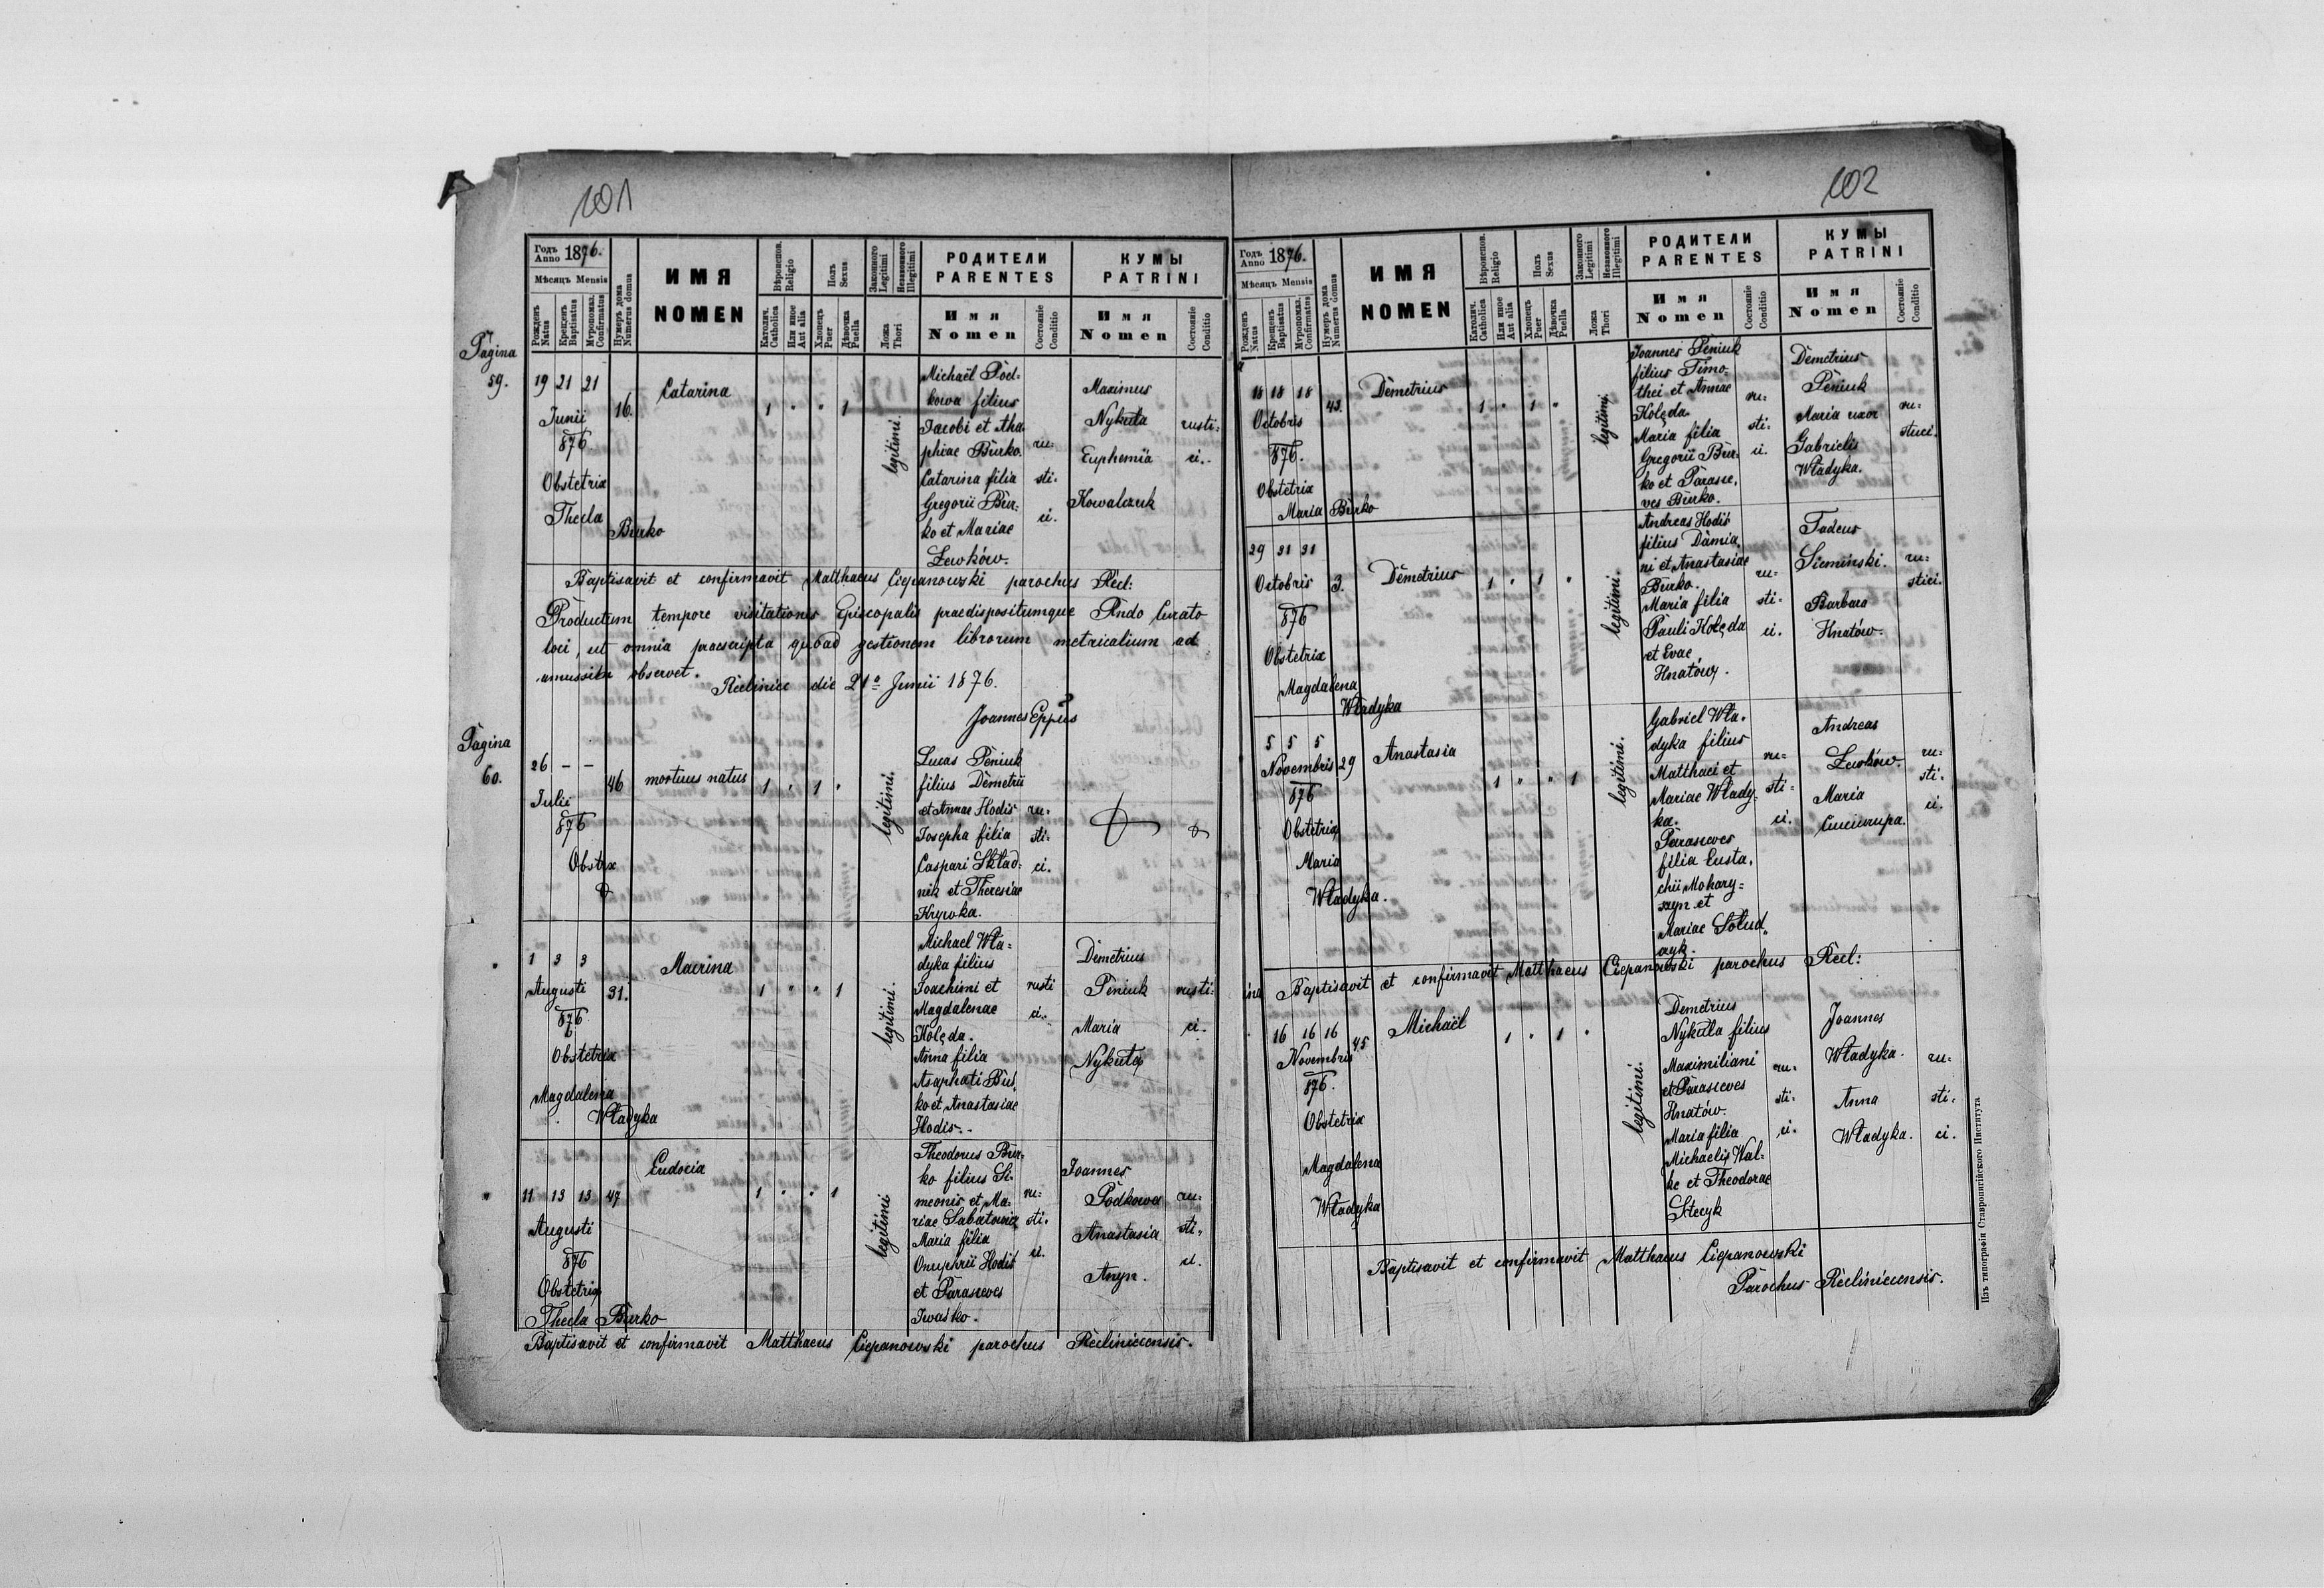 101
Годъ Anno 1876.
Мѣсяцъ Mensis
Рожденъ Natus
Крещенъ Baptisatus
Мѵропомаз. Confirmatus
Нумеръ дома Numerus domus
ИМЯ
NOMEN
Вѣроиспов. Religio
Католич. Catholica
Или иное Aut alia
Полъ Sexus
Хлопецъ Puer
Дѣвочка Puella
Законного Legitimi
Незаконного Illegitimi
Ложа Thori
РОДИТЕЛИ
PARENTES
Имя
Nomen
Состояніе Conditio
КУМЫ
PATRINI
Имя
Nomen
Состояніе Conditio
Pagina
59.
19 21 21
Junii
876.
Obstetrix
Thecla
Burko
16.
Catarina
1 " " 1
legitimi.
Michaël Pod-
kowa filius
Jacobi et Aha-
phiae Burko.
Catarina filia
Gregorii Bur-
ko et Mariae
Lewków.
ru-
sti-
ci.
Maximus
Nykuła
Euphemia
Kowalczuk
rusti-
ci.
Baptisavit et confirmavit Matthaeus Ciepanowski parochus Recl:
Productum tempore visitationis Episcopalis praedispositumque Rndo Curato
loci, ut omnia praescripta quoad gestionem librorum metricalium ad
amussim observet.
Reclinice die 21º Junii 1876.
Joannes Eppus
Pagina
60.
26 — —
Julii
876
Obstrx
46
mortuus natus
1 " 1 "
legitimi.
Lucas Peniuk
filius Demetrii
et Annae Hodis
Josepha filia
Caspari Skład-
nik et Theresiae
Krywka.
ru-
sti-
ci.
1 3 3
Augusti
876
Obstetrix
Magdalena
Władyka
31.
Macrina
1 " " 1
legitimi.
Michael Wła-
dyka filius
Joachimi et
Magdalenae
Kolęda.
Anna filia
Asaphati Bur-
ko et Anastasiae
Hodis.
rusti
ci.
Demetrius
Peniuk
Maria
Nykuła
rusti-
ci.
11 13 13
Augusti
876
Obstetrix
Thecla Burko
47
Eudocia
1 " " 1
legitimi
Theodorus Bur-
ko filius Si-
meonis et Ma-
riae Sabatowicz
Maria filia
Onuphrii Hodis
et Parasceves
Iwaśko.
ru-
sti-
ci.
Joannes
Podkowa
Anastasia
ru-
sti-
ci.
Baptisavit et confirmavit Matthaeus Ciepanowski parochus Recliniecensis.
102
Годъ Anno 1876.
Мѣсяцъ Mensis
Рожденъ Natus
Крещенъ Baptisatus
Мѵропомаз. Confirmatus
Нумеръ дома Numerus domus
ИМЯ
NOMEN
Вѣроиспов. Religio
Католич. Catholica
Или иное Aut alia
Полъ Sexus
Хлопецъ Puer
Дѣвочка Puella
Законного Legitimi
Незаконного Illegitimi
Ложа Thori
РОДИТЕЛИ
PARENTES
Имя
Nomen
Состояніе Conditio
КУМЫ
PATRINI
Имя
Nomen
Состояніе Conditio
18 18 18
Octobris
876.
Obstetrix
Maria Burko
43.
Demetrius
1 " 1 "
legitimi.
Joannes Peniuk
filius Timo-
thei et Annae
Kolęda.
Maria filia
Gregorii Bur-
ko et Parasce-
ves Burko.
ru-
sti-
ci.
Demetrius
Peniuk
Maria uxor
Gabrielis
Władyka.
ru-
stici.
29 31 31
Octobris
876
Obstetrix
Magdalena
Władyka
3.
Demetrius
1 " 1 "
legitimi.
Andreas Hodis
filius Damia-
ni et Anastasiae
Burko.
Maria filia
Pauli Kolęda
et Evae
Hnatów.
ru-
sti-
ci.
Tadeus
Siemiński.
Barbara
Hnatów.
ru-
stici.
5 5 5
Novembris
876
Obstetrix
Maria
Władyka.
29
Anastasia
1 " " 1
legitimi.
Gabriel Wła-
dyka filius
Matthaei et
Mariae Włady-
ka.
Parasceves
filia Eusta-
chii Mohary-
czyn et
Mariae Sołud-
czyk.
ru-
sti-
ci.
Andreas
Lewków.
Maria
ru-
sti-
ci.
Baptisavit et confirmavit Matthaeus Ciepanowski parochus Recl:
16 16 16
Novembris
876.
Obstetrix
Magdalena
Władyka
45
Michaël
1 " 1 "
legitimi.
Demetrius
Nykuła filius
Maximiliani
et Parasceves
Hnatów.
Maria filia
Michaelis Wal-
ke et Theodorae
Stecyk
ru-
sti-
ci.
Joannes
Władyka.
Anna
Władyka.
ru-
sti-
ci.
Baptisavit et confirmavit Matthaeus Ciepanowski
Parochus Recliniecensis.
Изъ типографіи Ставропигійского Института